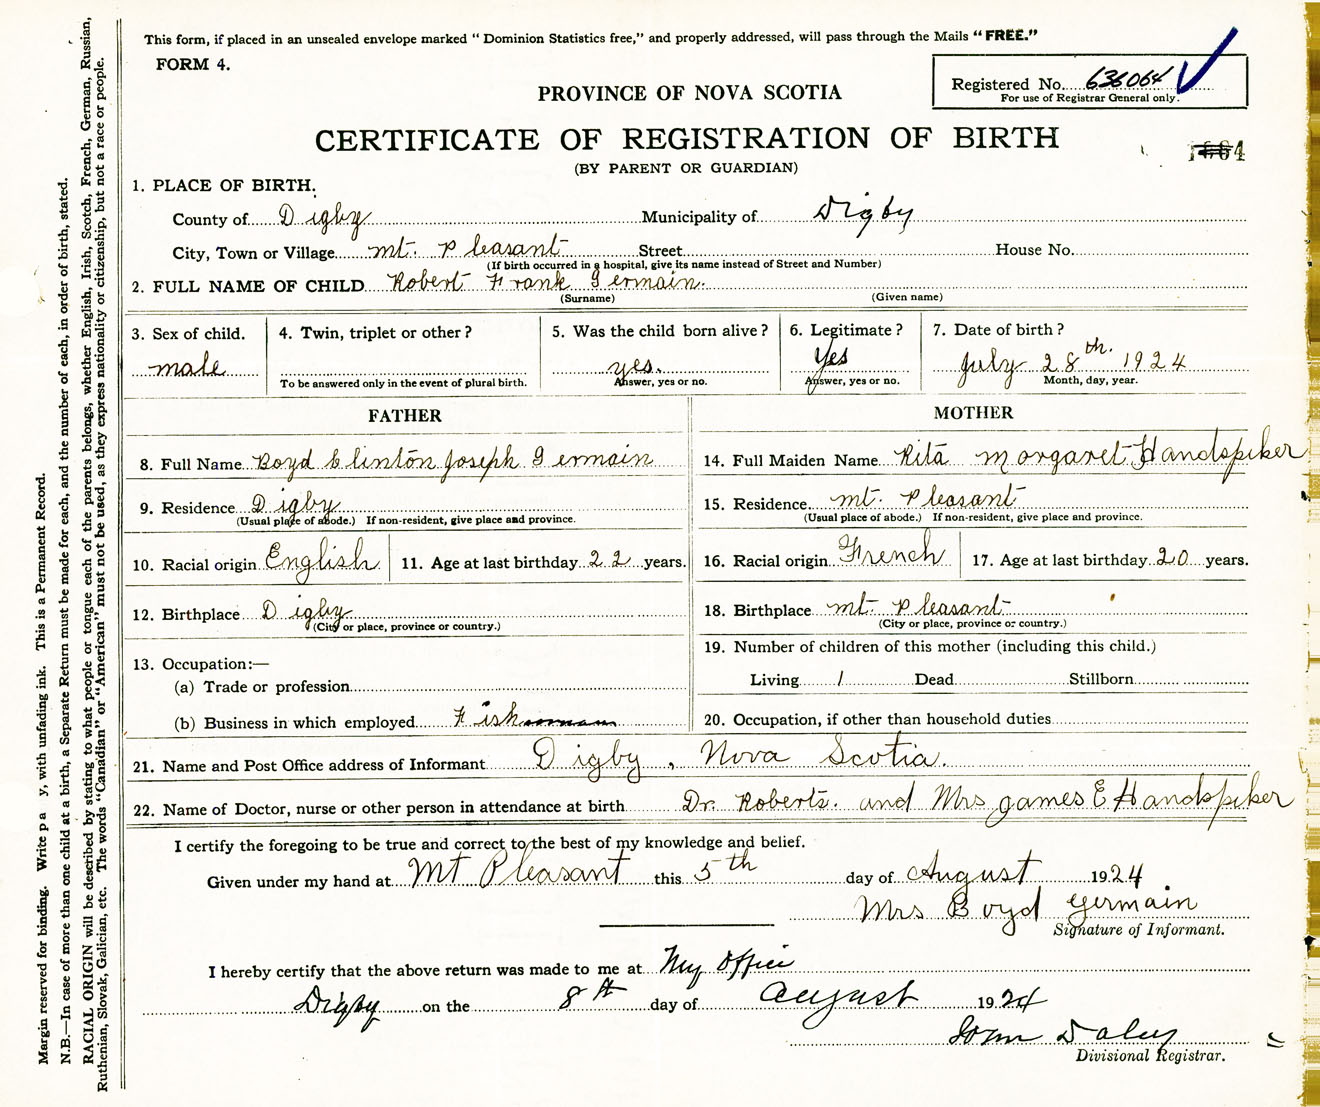 This form, if placed in an unsealed envelope marked "Dominion Statistics free," and properly addressed, will pass through the Mails "FREE."
FORM 4.
Registered No. 636064
For use of Registrar General only.
PROVINCE OF NOVA SCOTIA
CERTIFICATE OF REGISTRATION OF BIRTH
(BY PARENT OR GUARDIAN)
1. PLACE OF BIRTH.
County of Digby Municipality of Digby
City, Town or Village Mt. Pleasant Street House No.
(If birth occurred in a hospital, give its name instead of Street and Number)
2. FULL NAME OF CHILD Robert Frank Germain.
(Surname) (Given name)
3. Sex of child. 4. Twin, triplet or other? 5. Was the child born alive? 6. Legitimate? 7. Date of birth?
male yes. Yes July 28th. 1924
To be answered only in the event of plural birth. Answer, yes or no. Answer, yes or no. Month, day, year.
FATHER
8. Full Name Boyd Clinton Joseph Germain
9. Residence Digby
(Usual place of abode.) If non-resident, give place and province.
10. Racial origin English 11. Age at last birthday 22 years.
12. Birthplace Digby
(City or place, province or country.)
13. Occupation:—
(a) Trade or profession
(b) Business in which employed Fish
MOTHER
14. Full Maiden Name Rita Margaret Handspiker
15. Residence Mt. Pleasant
(Usual place of abode.) If non-resident, give place and province.
16. Racial origin French 17. Age at last birthday 20 years.
18. Birthplace Mt. Pleasant
(City or place, province or country.)
19. Number of children of this mother (including this child.)
Living 1 Dead Stillborn
20. Occupation, if other than household duties
21. Name and Post Office address of Informant Digby, Nova Scotia.
22. Name of Doctor, nurse or other person in attendance at birth Dr. Roberts. and Mrs James E Handspiker
I certify the foregoing to be true and correct to the best of my knowledge and belief.
Given under my hand at Mt Pleasant this 5th day of August 1924
Mrs Boyd Germain
Signature of Informant.
I hereby certify that the above return was made to me at My Office
Digby on the 8th day of August 1924
John Daley
Divisional Registrar.
Margin reserved for binding. Write pa y, with unfading ink. This is a Permanent Record.
N.B.—In case of more than one child at a birth, a Separate Return must be made for each, and the number of each, in order of birth, stated.
RACIAL ORIGIN will be described by stating to what people or tongue each of the parents belongs, whether English, Irish, Scotch, French, German, Russian,
Ruthenian, Slovak, Galician, etc. The words "Canadian" or "American" must not be used, as they express nationality or citizenship, but not a race or people.